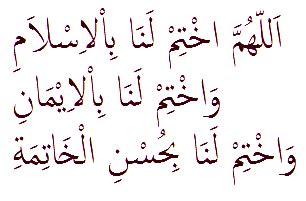 اَللّٰهُمَّ اخْتِمْ لَنَا بِاْلاِسْلَامِ
وَاخْتِمْ لَنَا بِاْلاِيْمَانِ
وَاخْتِمْ لَنَا بِحُسْنِ الْخَاتِمَةِ